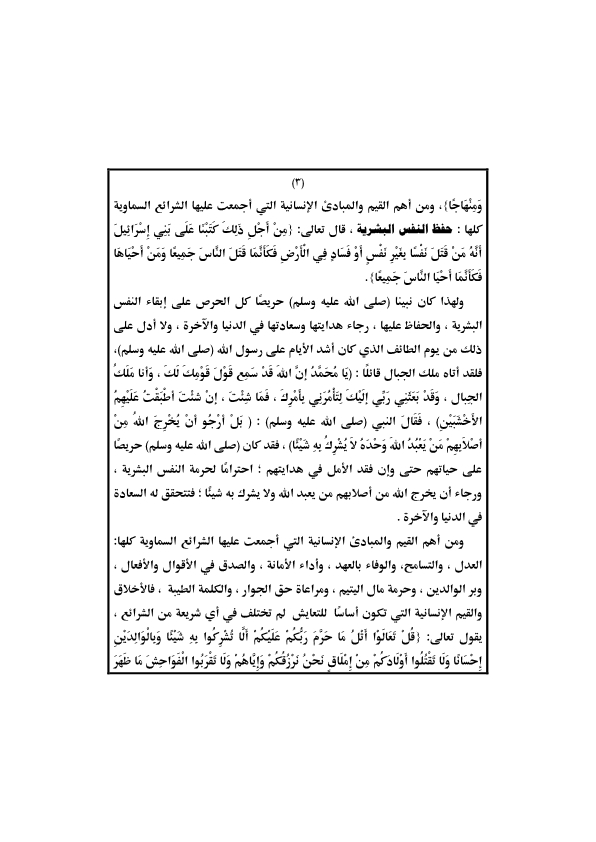 (٣)
وَمِنْهَاجًا}، ومن أهم القيم والمبادئ الإنسانية التي أجمعت عليها الشرائع السماوية
كلها : حفظ النفس البشرية ، قال تعالى: {مِنْ أَجْلِ ذَلِكَ كَتَبْنَا عَلَى بَنِي إِسْرَائِيلَ
أَنَّهُ مَنْ قَتَلَ نَفْسًا بِغَيْرِ نَفْسٍ أَوْ فَسَادٍ فِي الْأَرْضِ فَكَأَنَّمَا قَتَلَ النَّاسَ جَمِيعًا وَمَنْ أَحْيَاهَا
فَكَأَنَّمَا أَحْيَا النَّاسَ جَمِيعًا}.
ولهذا كان نبينا (صلى الله عليه وسلم) حريصًا كل الحرص على إبقاء النفس
البشرية ، والحفاظ عليها ، رجاء هدايتها وسعادتها في الدنيا والآخرة ، ولا أدل على
ذلك من يوم الطائف الذي كان أشد الأيام على رسول الله (صلى الله عليه وسلم)،
فلقد أتاه ملك الجبال قائلًا : (يَا مُحَمَّدُ إنَّ اللهَ قَدْ سَمِع قَوْلَ قَوْمِكَ لَكَ ، وَأنا مَلَكُ
الجبال ، وَقَدْ بَعَثَنِي رَبِّي إلَيْكَ لِتَأْمُرَنِي بِأَمْرِكَ ، فَمَا شِئْتَ ، إنْ شئْتَ أطْبَقْتُ عَلَيْهِمُ
الأَخْشَبَيْنِ) ، فَقَالَ النبي (صلى الله عليه وسلم) : ( بَلْ أرْجُو أنْ يُخْرِجَ اللهُ مِنْ
أصْلاَبِهِمْ مَنْ يَعْبُدُ اللهَ وَحْدَهُ لاَ يُشْرِكُ بِهِ شَيْئًا) ، فقد كان (صلى الله عليه وسلم) حريصًا
على حياتهم حتى وإن فقد الأمل في هدايتهم ؛ احترامًا لحرمة النفس البشرية ،
ورجاء أن يخرج الله من أصلابهم من يعبد الله ولا يشرك به شيئًا ؛ فتتحقق له السعادة
في الدنيا والآخرة .
ومن أهم القيم والمبادئ الإنسانية التي أجمعت عليها الشرائع السماوية كلها:
العدل ، والتسامح، والوفاء بالعهد ، وأداء الأمانة ، والصدق في الأقوال والأفعال ،
وبر الوالدين ، وحرمة مال اليتيم ، ومراعاة حق الجوار ، والكلمة الطيبة ، فالأخلاق
والقيم الإنسانية التي تكون أساسًا للتعايش لم تختلف في أي شريعة من الشرائع ،
يقول تعالى: {قُلْ تَعَالَوْا أَتْلُ مَا حَرَّمَ رَبُّكُمْ عَلَيْكُمْ أَلَّا تُشْرِكُوا بِهِ شَيْئًا وَبِالْوَالِدَيْنِ
إِحْسَانًا وَلَا تَقْتُلُوا أَوْلَادَكُمْ مِنْ إِمْلَاقٍ نَحْنُ نَرْزُقُكُمْ وَإِيَّاهُمْ وَلَا تَقْرَبُوا الْفَوَاحِشَ مَا ظَهَرَ